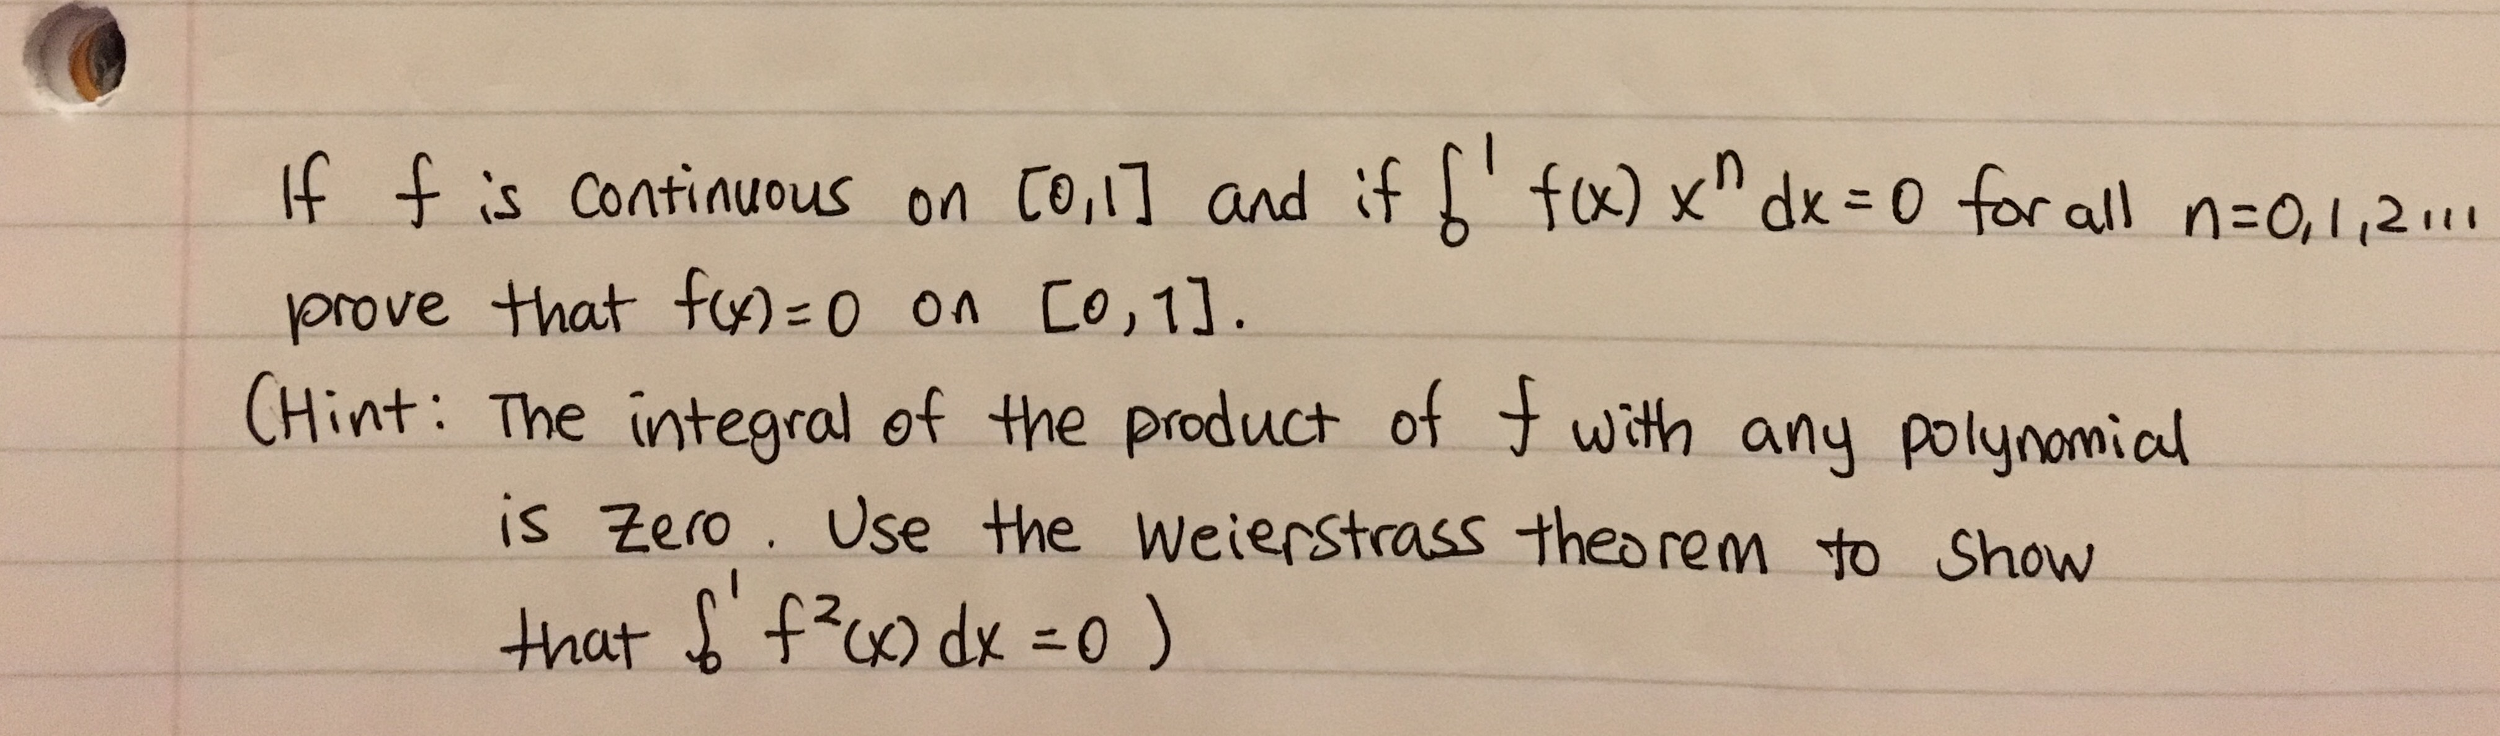 If f is continuous on [0,1] and if ∫₀¹ f(x) xⁿ dx = 0 for all n=0,1,2...
prove that f(x)=0 on [0,1].
(Hint: The integral of the product of f with any polynomial
is zero. Use the Weierstrass theorem to show
that ∫₀¹ f²(x) dx = 0)